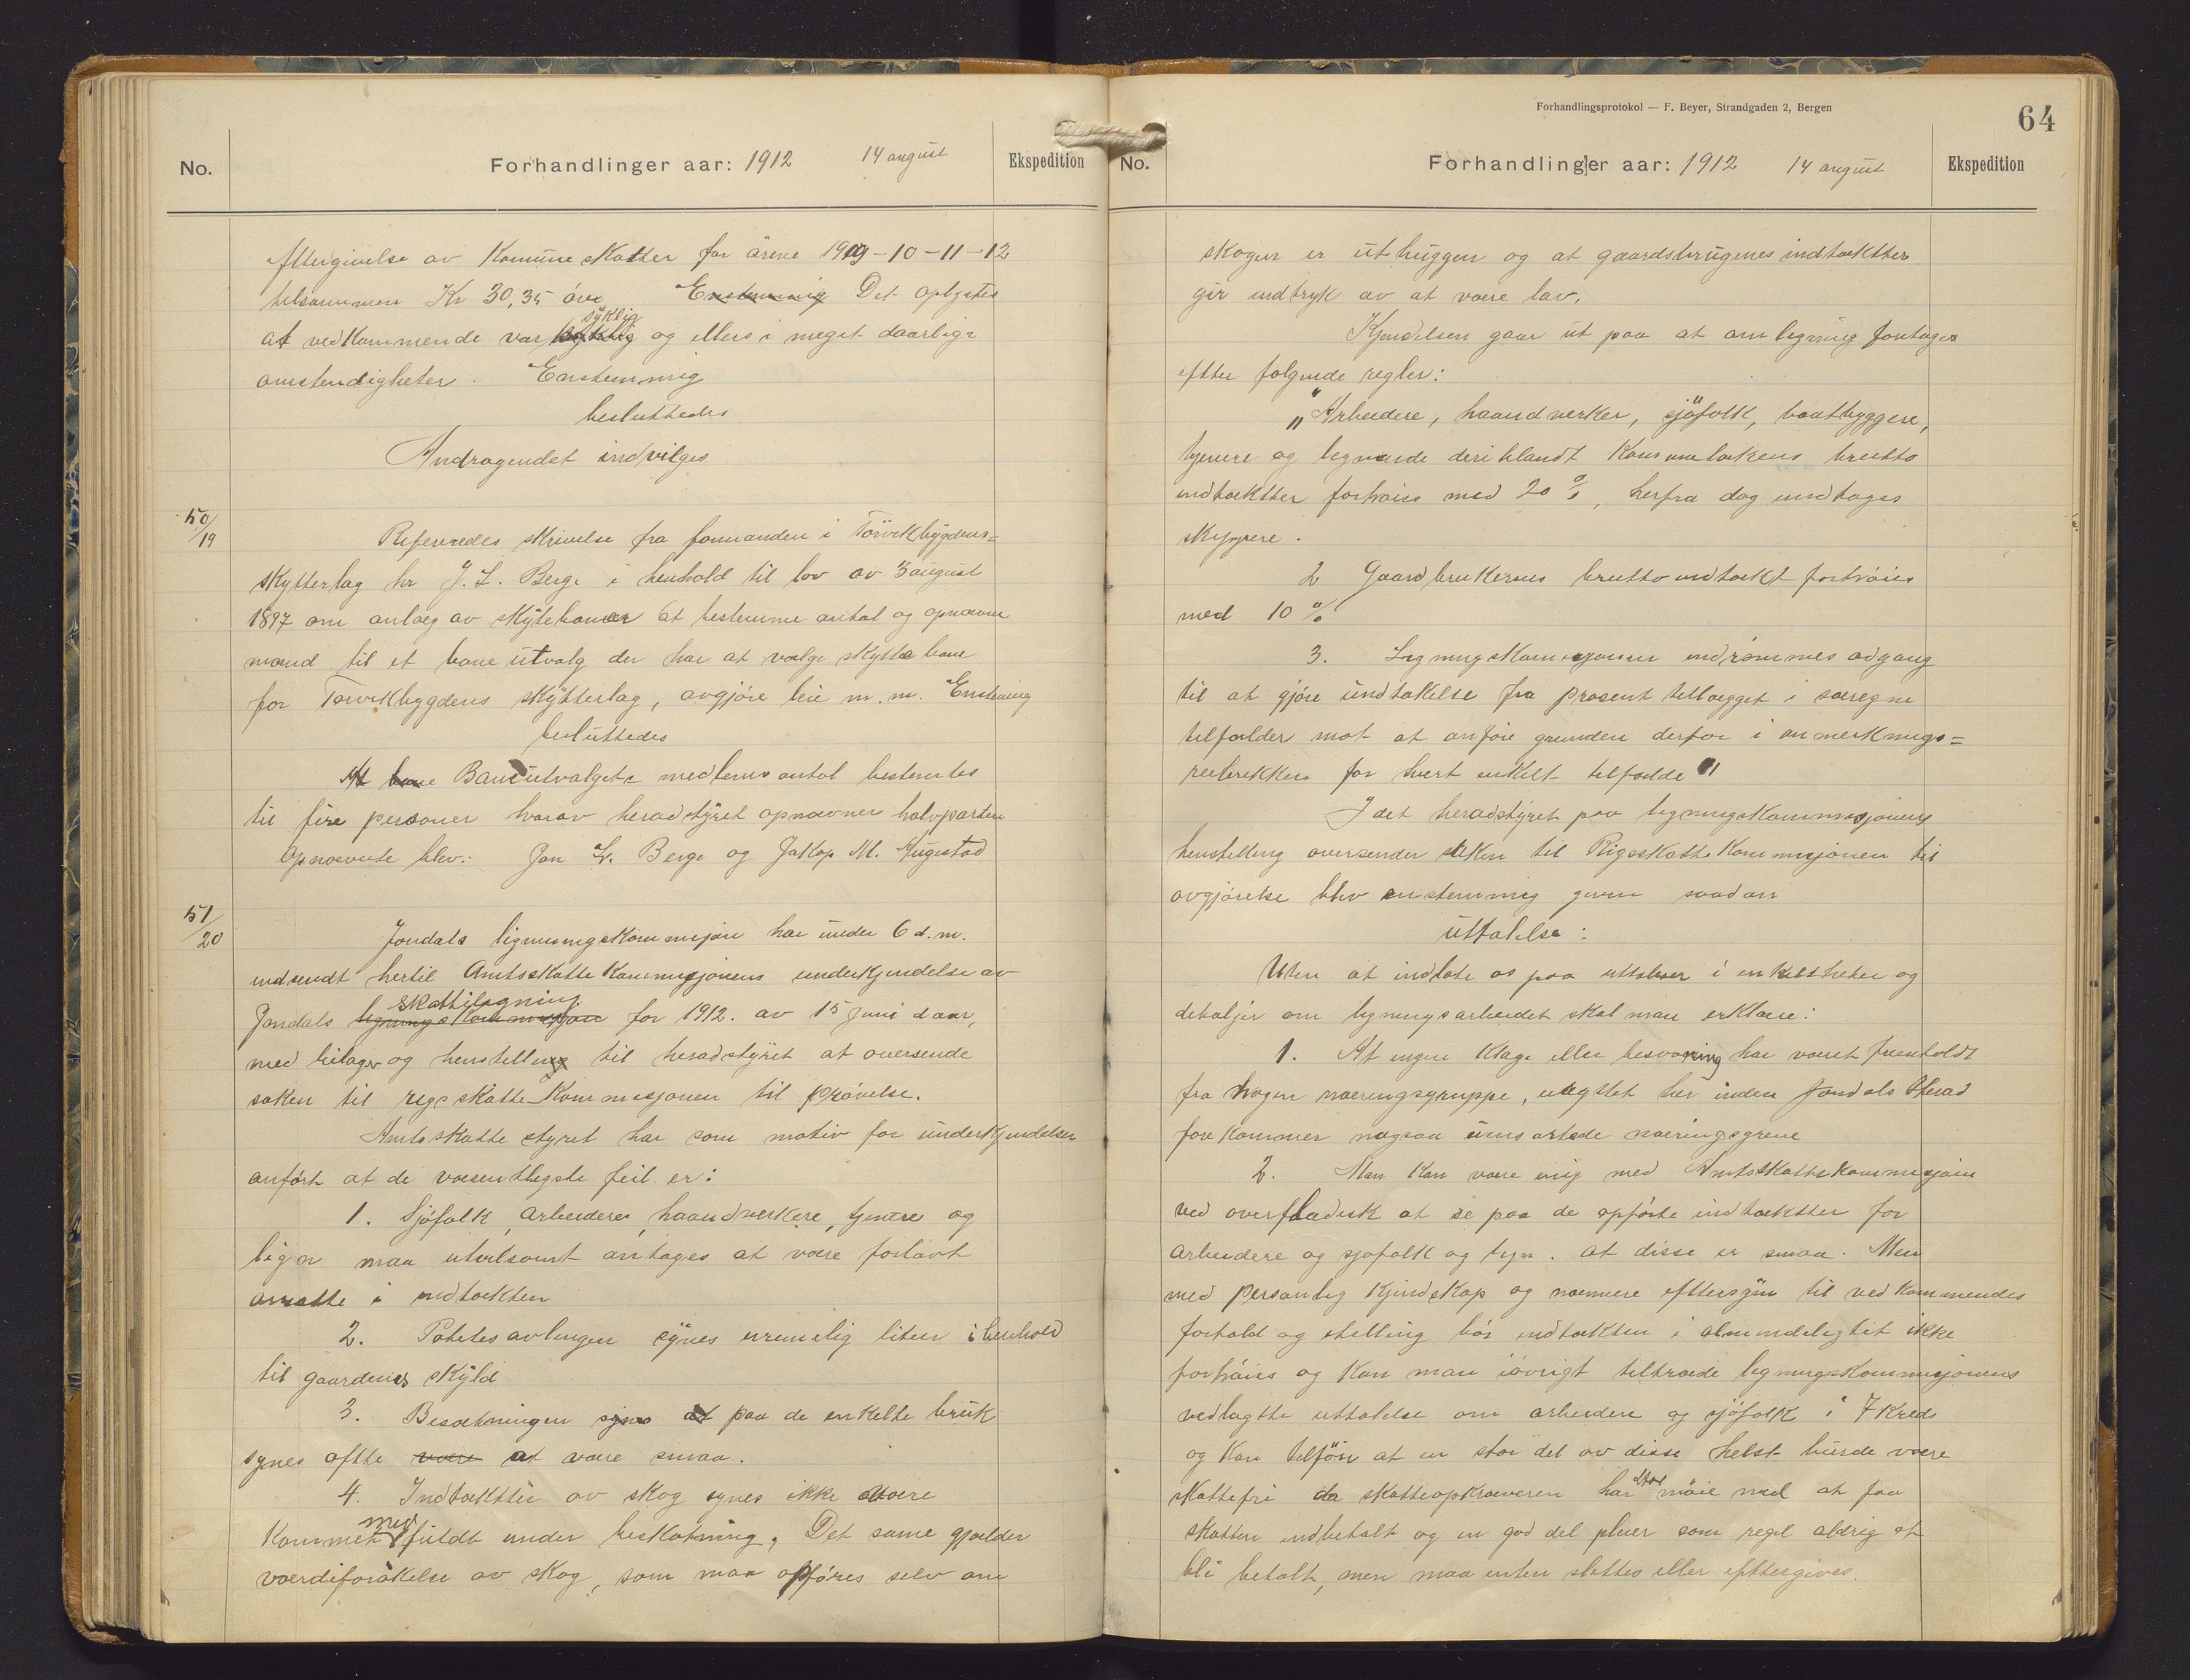 No.
Forhandlinger aar: 1912 14 august
Ekspedition
eftergivelse av Komuneskatter for årene 1909-10-11-12
tilsammen Kr 30,35 öre Enstemmig Det oplystes
at vedkommende var syklig og ellers i meget daarlige
omstendigheter. Enstemmig
besluttedes
Andragendet indvilges
50/19
Refereredes skrivelse fra formanden i Torvikbygdens-
skytterlag hr J. L. Berge i henhold til lov av 3 august
1897 om anlæg av skytebaner at bestemme antal og opnævne
mænd til et bane utvalg der har at vælge skytte bane
for Torvikbygdens skytterlag, avgjöre leie m.m. Enstemmig
besluttedes
At bane Baneutvalgets medlems antal bestemtes
til fire personer hvorav heradstyret opnævner halvparten
Opnævnte blev: Jon L. Berge og Jakop M. Augestad
51/20
Jondals ligningskommisjon har under 6 d.m.
indsendt hertil Amtsskatte Kommisjonens underkjendelse av
skattiligning
Jondals ligningskommisjon for 1912. av 15 Juni d aar,
med bilager og henstilling til heradstyret at oversende
saken til rigsskatte Kommisjonen til prövelse.
Amtsskattestyret har som motiv for underkjendelsen
anfört at de væsentligste feil er:
1. Sjöfolk, arbeidere, haandverkere, tjenere og
lign maa utvilsomt antages at være forlavt
ansatte i indtækten
2. Potetesavlingen synes urimelig liten i henhold
til gaardenes skyld
3. Besætningen synes at paa de enkelte bruk
synes ofte være at være smaa.
4. Indtækter av skog synes ikke være
kommet med fuldt under beskatning. Det same gjælder
værdiforökelse av skog, som maa opföres selv om
Forhandlingsprotokol — F. Beyer, Strandgaden 2, Bergen
64
No.
Forhandlinger aar: 1912 14 august
Ekspedition
skogen er uthuggen og at gaardsbrugenes indtækter
gir indtryk av at være lav.
Kjendelsen gaar ut paa at omligning foretages
efter folgende regler:
"Arbeidere, haandverker, sjöfolk, baatbyggere,
tjenere og lignende deriblandt Kaarmottakens brutto
indtækter forhöies med 20 %, herfra dog undtages
skippere.
2 Gaardbrukernes brutto indtækt forhöies
med 10 %
3. Ligningskommisjonen indrömmes adgang
til at gjöre undtakelse fra prosent tillægget i særegne
tilfælder mot at anföre grunden derfor i anmerknings-
rubrikken for hvert enkelt tilfælde"
Idet heradstyret paa ligningskommisjonens
henstilling oversender saken til Rigsskatte Kommisjonen til
avgjörelse blev enstemmig given saadan
uttalelse:
Uten at indlate os paa uttalelser i enkeltheter og
detaljer om ligningsarbeidet skal man erklære:
1. At ingen klage eller besværing har været fremholdt
fra nogen næringsgruppe, uagtet her inden Jondals Herad
forekommer nogsaa uensartede næringsgrene
2. Man kan være enig med Amtsskattekommisjonen
ved overfladisk at se paa de opförte indtækter for
arbeidere og sjofolk og lign. at disse er smaa. Men
med personlig kjendskap og nærmere eftersyn til vedkommendes
forhold og stilling bör indtækten i almindelighet ikke
forhöies og kan man iövrigt tiltræde ligningskommisjonens
vedlagte uttalelse om arbeidere og sjöfolk i 7 kreds
og kan tilföie at en stor del av disse helst burde være
skattefri da skatteopkræveren har stor möie med at faa
skatten indbetalt og en god del pleier som regel aldrig at
bli betalt, men maa enten slettes eller eftergives.